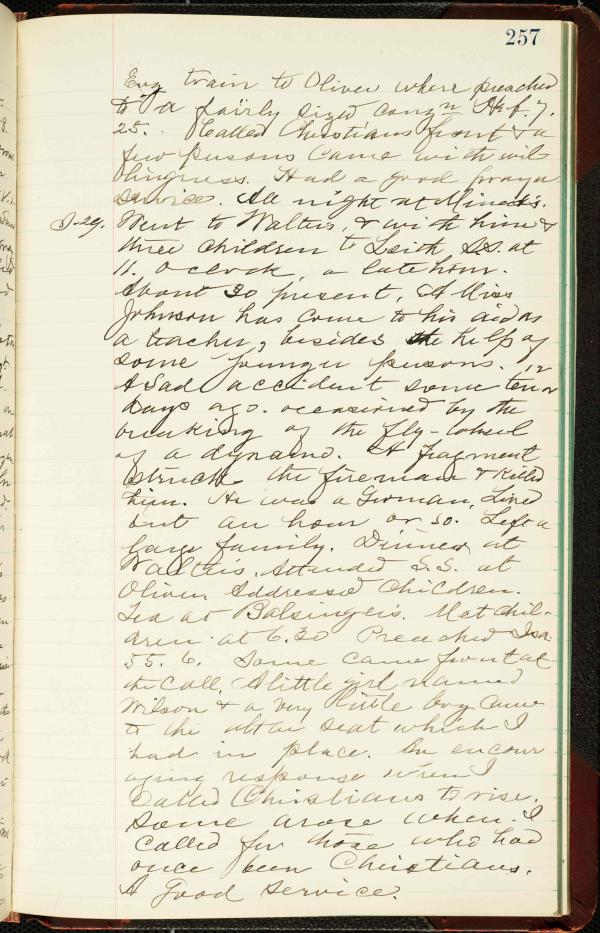 257
Evg train to Oliver where preached
to a fairly sized congn Heb. 7.
25. Called Christians front & a
few persons came with wil-
lingness. Had a good prayer
service. All night at
S-29. Went to Walters, & with him &
three children to Leith S.S. at
11. O clock, a late hour.
About 30 present, A Miss
Johnson has come to his aid as
a teacher, besides the help of
some younger persons.
A Sad accident some ten or 12
days ago. occasioned by the
breaking of the fly-wheel
of a dynamo. A fragment
struck the fireman & killed
him. He was a German, Lived
but an hour or so. Left a
large family. Dinner at
Walters. Attended S.S. at
Oliver. Addressed Children.
Tea at Balsingers. Met chil-
dren at 6.30 Preached Isa.
55. 6. Some came front at
the call, A little girl named
Wilson & a very little boy came
to the altar seat which I
had in place. An encour
aging response when I
Called Christians to rise.
Some arose when I
called for those who had
once been Christians.
A Good Service.